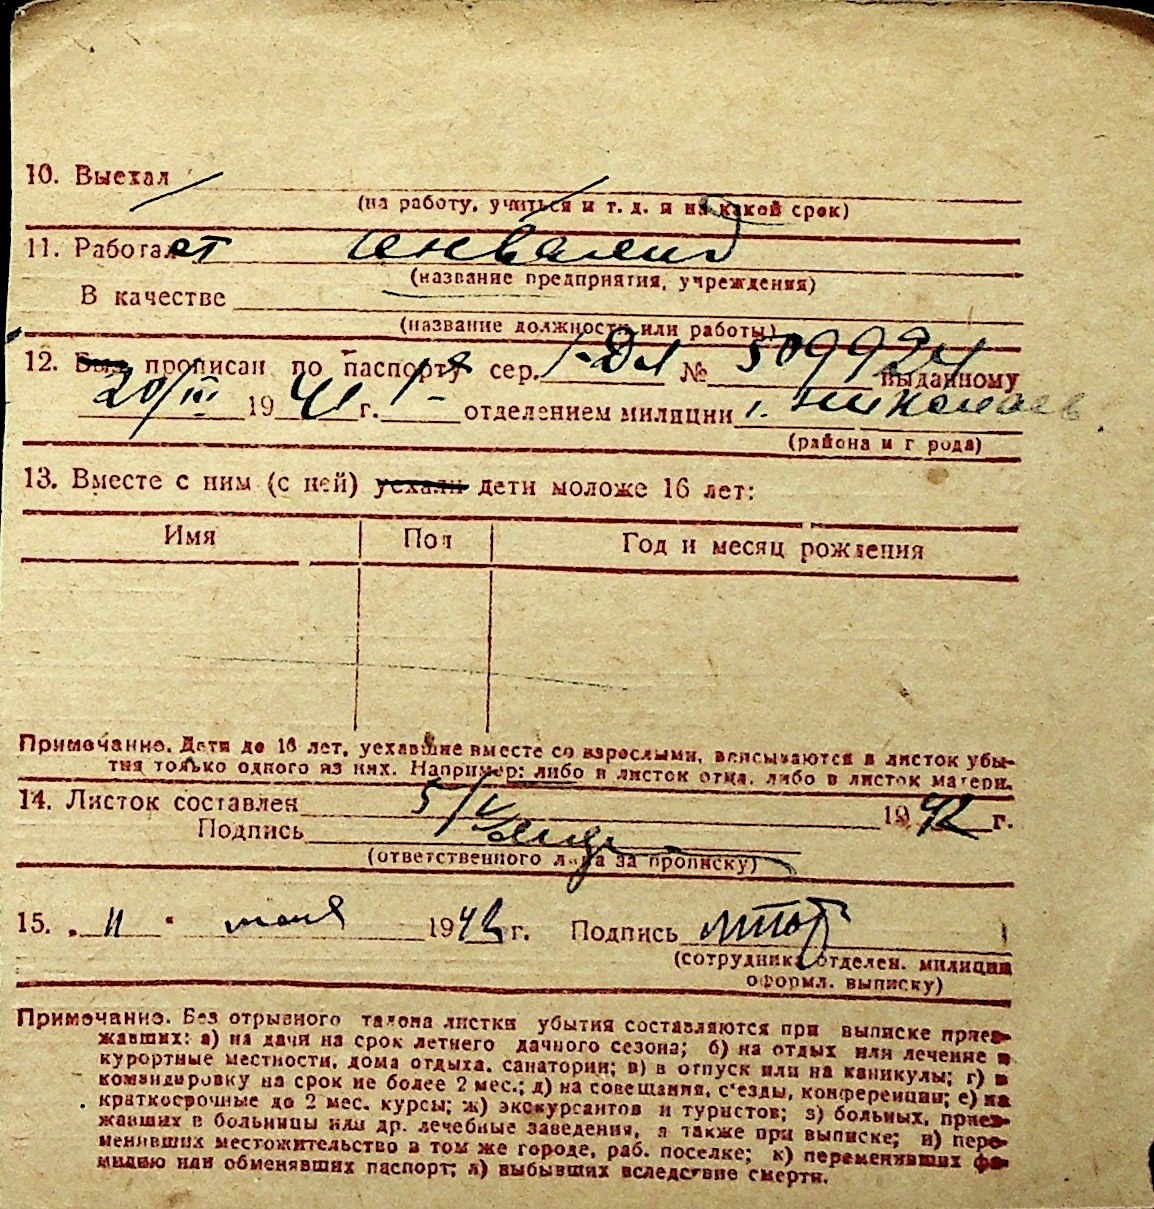 10. Выехал
(на работу, учиться и т. д. и на какой срок)
11. Работает инвалид
(название предприятия, учреждения)
В качестве
(название должности или работы)
12. Был прописан по паспорту сер. № 509924 выданному
20/III 1941 г. 1 отделением милиции г. Николаев
(района и г рода)
13. Вместе с ним (с ней) уехали дети моложе 16 лет:
Имя Пол Год и месяц рождения
Примечание. Дети до 16 лет, уехавшие вместе со взрослыми, вписываются в листок убы-
тия только одного из них. Например: либо в листок отца, либо в листок матери.
14. Листок составлен 5/V 1942 г.
Подпись
(ответственного лица за прописку)
15. „11" июня 1942 г. Подпись
(сотрудника отделен. милиции
оформл. выписку)
Примечание. Без отрывного талона листки убытия составляются при выписке приез-
жавших: а) на дачи на срок летнего дачного сезона; б) на отдых или лечение в
курортные местности, дома отдыха, санатории; в) в отпуск или на каникулы; г) в
командировку на срок не более 2 мес.; д) на совещания, с'езды, конференции; е) на
краткосрочные до 2 мес. курсы; ж) экскурсантов и туристов; з) больных, приез-
жавших в больницы или др. лечебные заведения, а также при выписке; и) пере-
менивших местожительство в том же городе, раб. поселке; к) переменивших фа-
милию или обменявших паспорт; л) выбывших вследствие смерти.